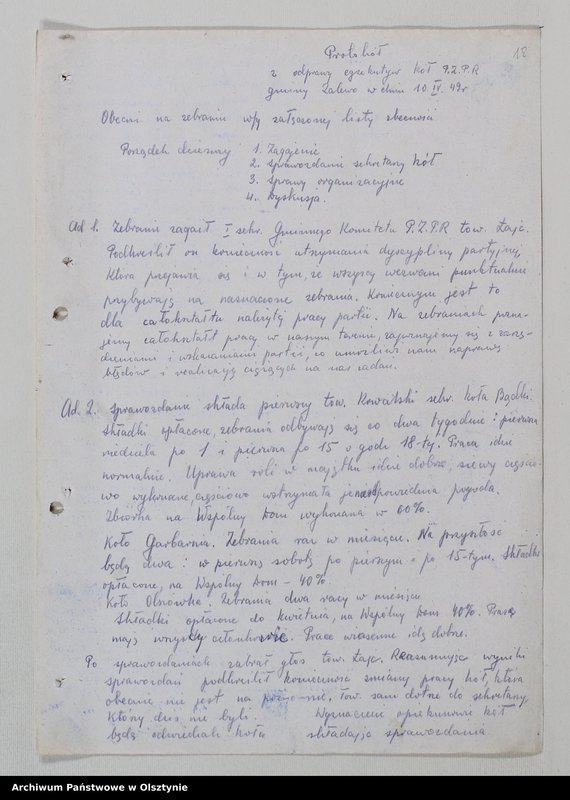 18
Protokół
z odprawy egzekutyw kół P.Z.P.R
gminy Zalewo w dniu 10.IV.49r
Obecni na zebraniu wg załączonej listy obecności
Porządek dzienny 1. Zagajenie
2. Sprawozdanie sekretarzy kół
3. Sprawy organizacyjne
4. Dyskusja.
Ad 1. Zebranie zagaił I sekr. Gminnego Komitetu P.Z.P.R tow. Zając.
Podkreślił on konieczność utrzymania dyscypliny partyjnej
która przejawia się i w tym, że wszyscy wezwani punktualnie
przybywają na naznaczone zebrania. Koniecznym jest to
dla całokształtu należytej pracy partii. Na zebraniach
jemy całokształt pracy w naszym terenie, zapoznajemy się z zarzą-
dzeniami i wskazaniami partii, co umożliwi nam naprawę
błędów i realizację ciążących na nas zadań.
Ad. 2. Sprawozdanie składa pierwszy tow. Kowalski sekr. koła Bądki.
Składki opłacone, zebrania odbywają się co dwa tygodnie: pierwsza
niedziela po 1 i pierwsza po 15 o godz 18-tej. Praca idzie
normalnie. Uprawa roli w majątku idzie dobrze, siewy częścio-
wo wykonane, częściowo wstrzymała pogoda.
Zbiórka na Wspólny Dom wykonana w 60%.
Koło Garbarnia. Zebrania raz w miesiącu. Na przyszłość
będą dwa: w pierwszą sobotę po pierwszym i po 15-tym. Składki
opłacone, na Wspólny Dom - 40%.
Koło Zebrania dwa razy w miesiącu
Składki opłacone do kwietnia, na Wspólny Dom 40%. Prasę
mają wszyscy członkowie. Prace wiosenne idą dobrze.
Po sprawozdaniach zabrał głos tow. Zając. Reasumując wyniki
sprawozdań podkreślił konieczność zmiany pracy kół, która
obecnie nie jest na poziomie. Tow. sam dotrze do sekretarzy
którzy dziś nie byli. Wyznaczeni opiekunowie kół
będą odwiedzali koła składając sprawozdania
Archiwum Państwowe w Olsztynie